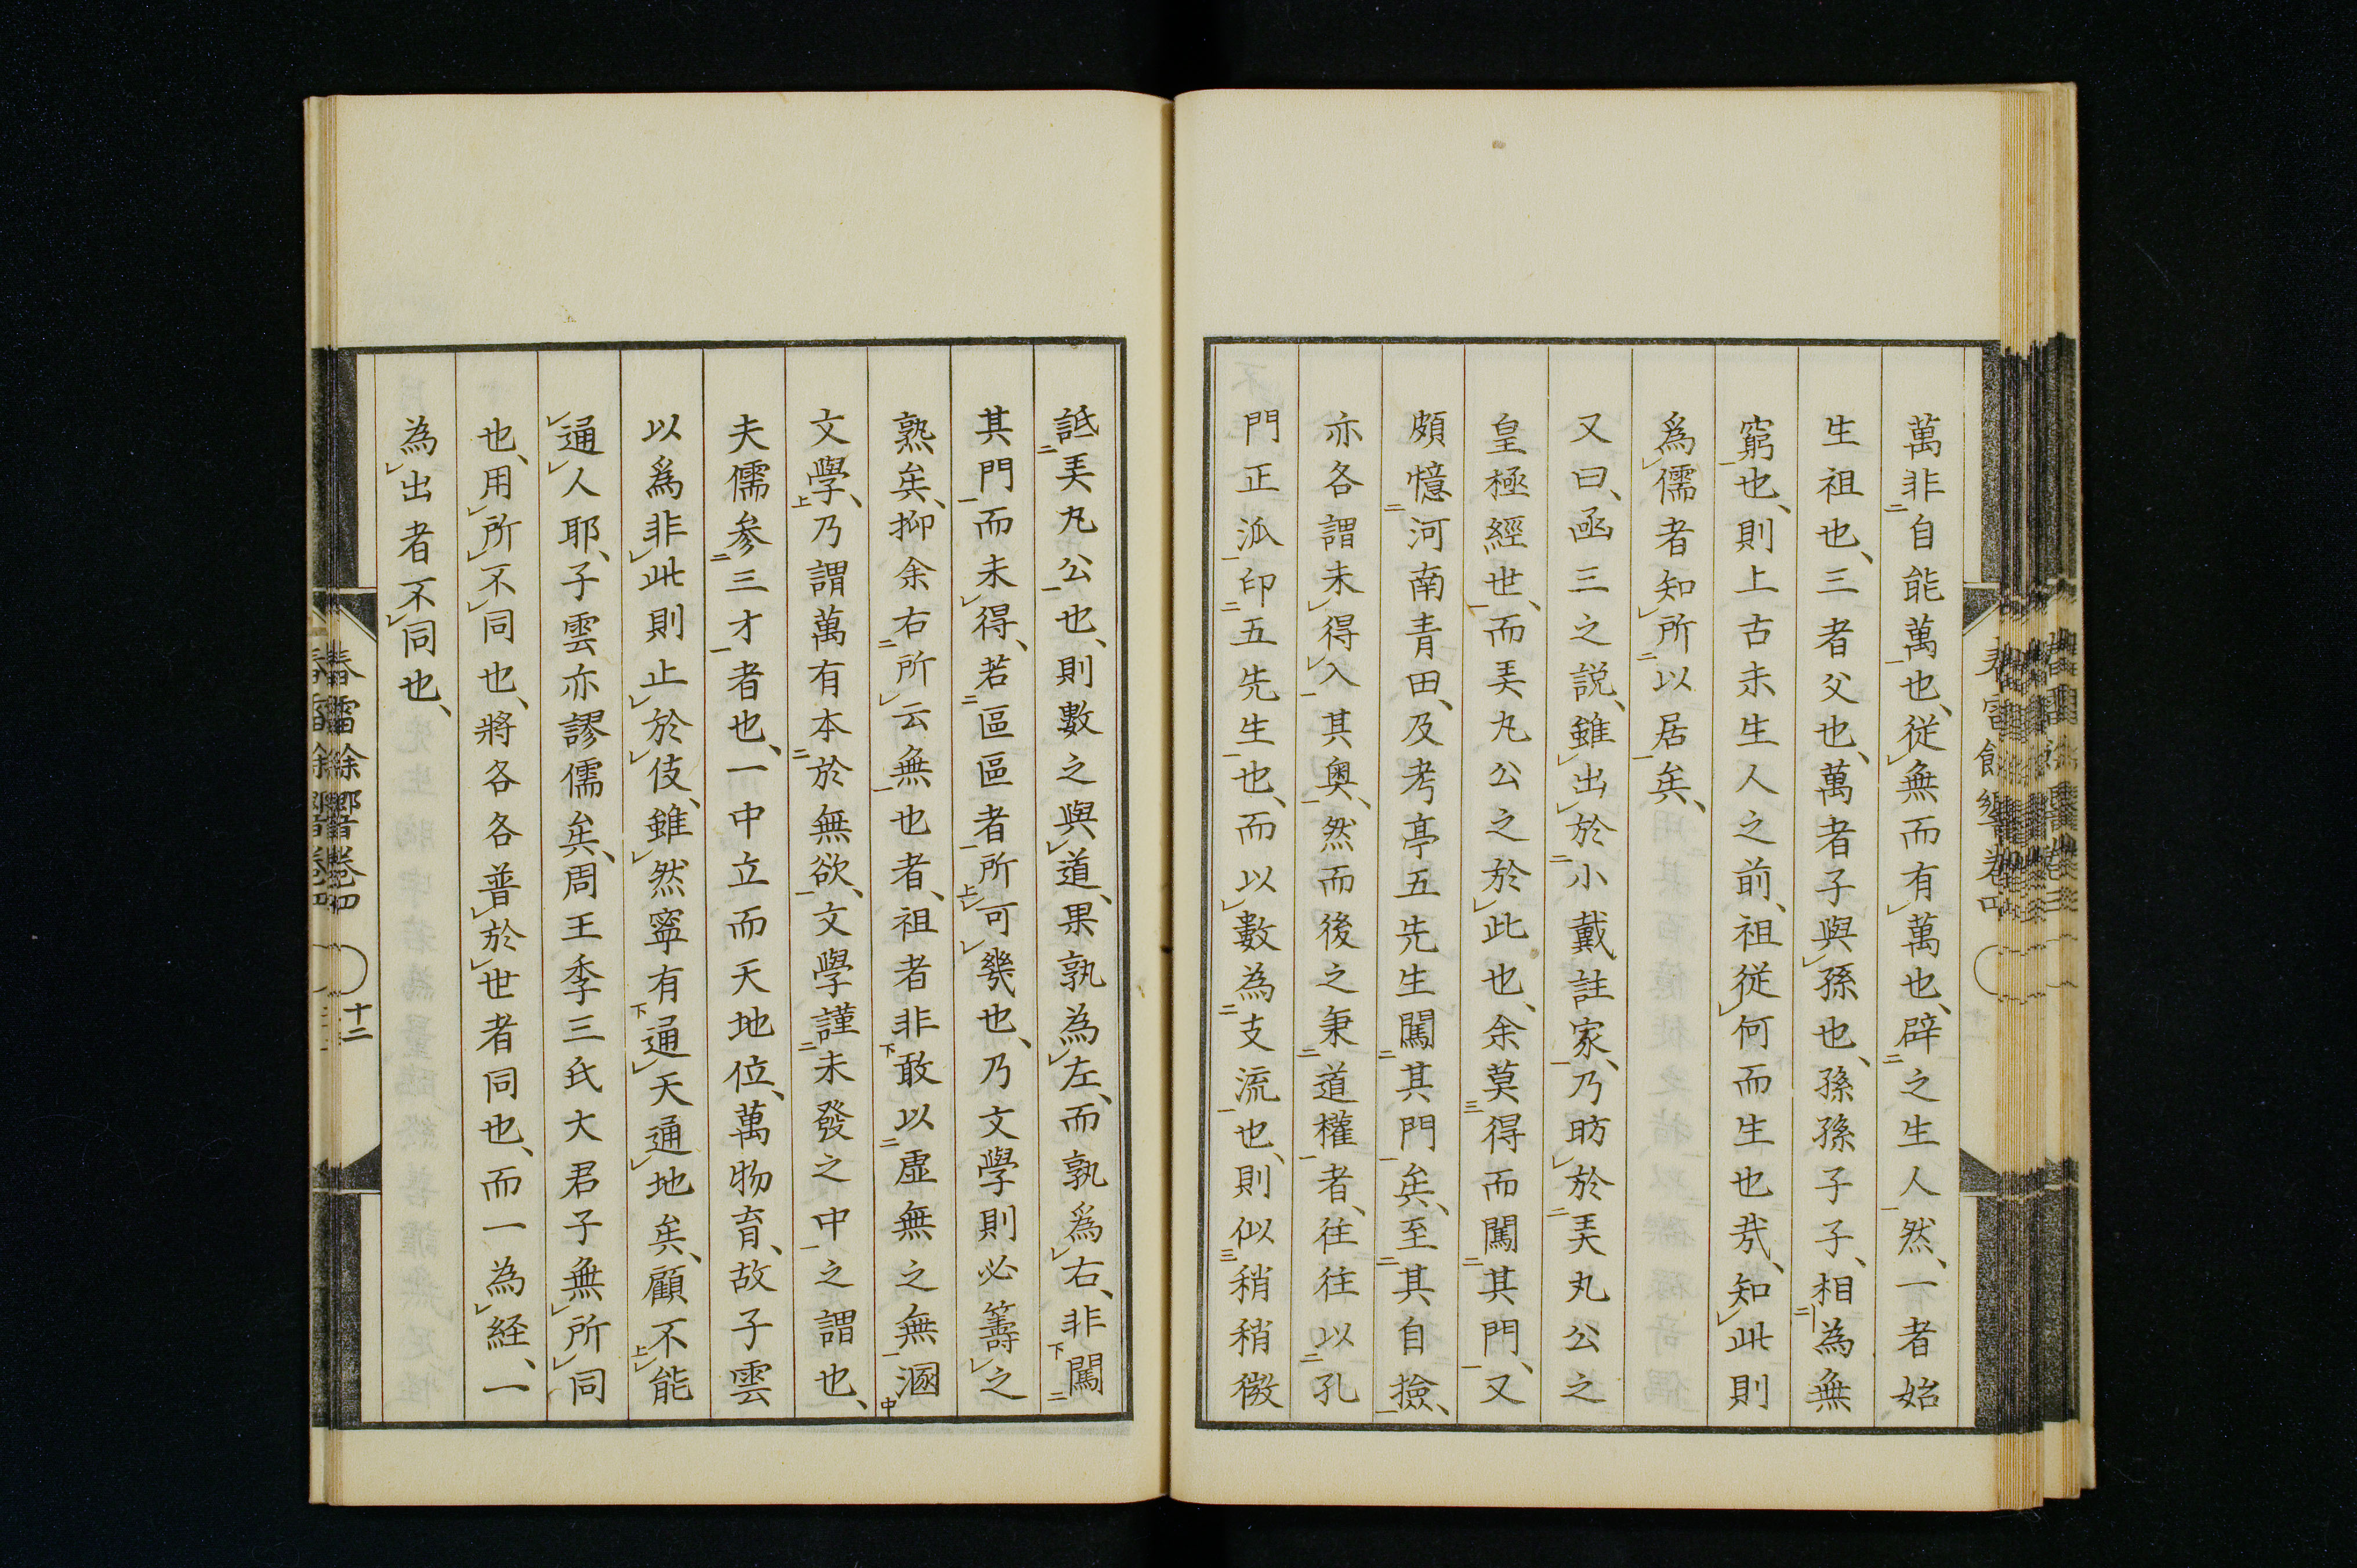 萬非自能萬也、従無而有萬也、辟之生人然、一者始
生祖也、三者父也、萬者子與孫也、孫孫子子、相為無
窮也、則上古未生人之前、祖従何而生也㢤、知此則
爲儒者知所以居矣、
又曰、函三之説、雖出於小戴註家、乃昉於美丸公之
皇極經世、而美丸公之於此也、余莫得而闖其門、又
頗憶河南青田、及考亭五先生闖其門矣、至其自撿、
亦各謂未得入其奥、然而後之秉道權者、往往以孔
門正泒印五先生也、而以數為支流也、則似稍稍微
詆美丸公也、則數之與道、果孰為左、而孰爲右、非闖
其門而未得、若區區者所可幾也、乃文學則必籌之
熟矣、抑余右所云無也者、祖者非敢以虛無之無溷
文學、乃謂萬有本於無欲、文學謹未發之中之謂也、
夫儒参三才者也、一中立而天地位、萬物育、故子雲
以爲非此則止於伎、雖然寧有通天通地矣、顧不能
通人耶、子雲亦謬儒矣、周王季三氏大君子無所同
也、用所不同也、將各各普於世者同也、而一為経、一
為出者不同也、
春雷餘響卷四
十二